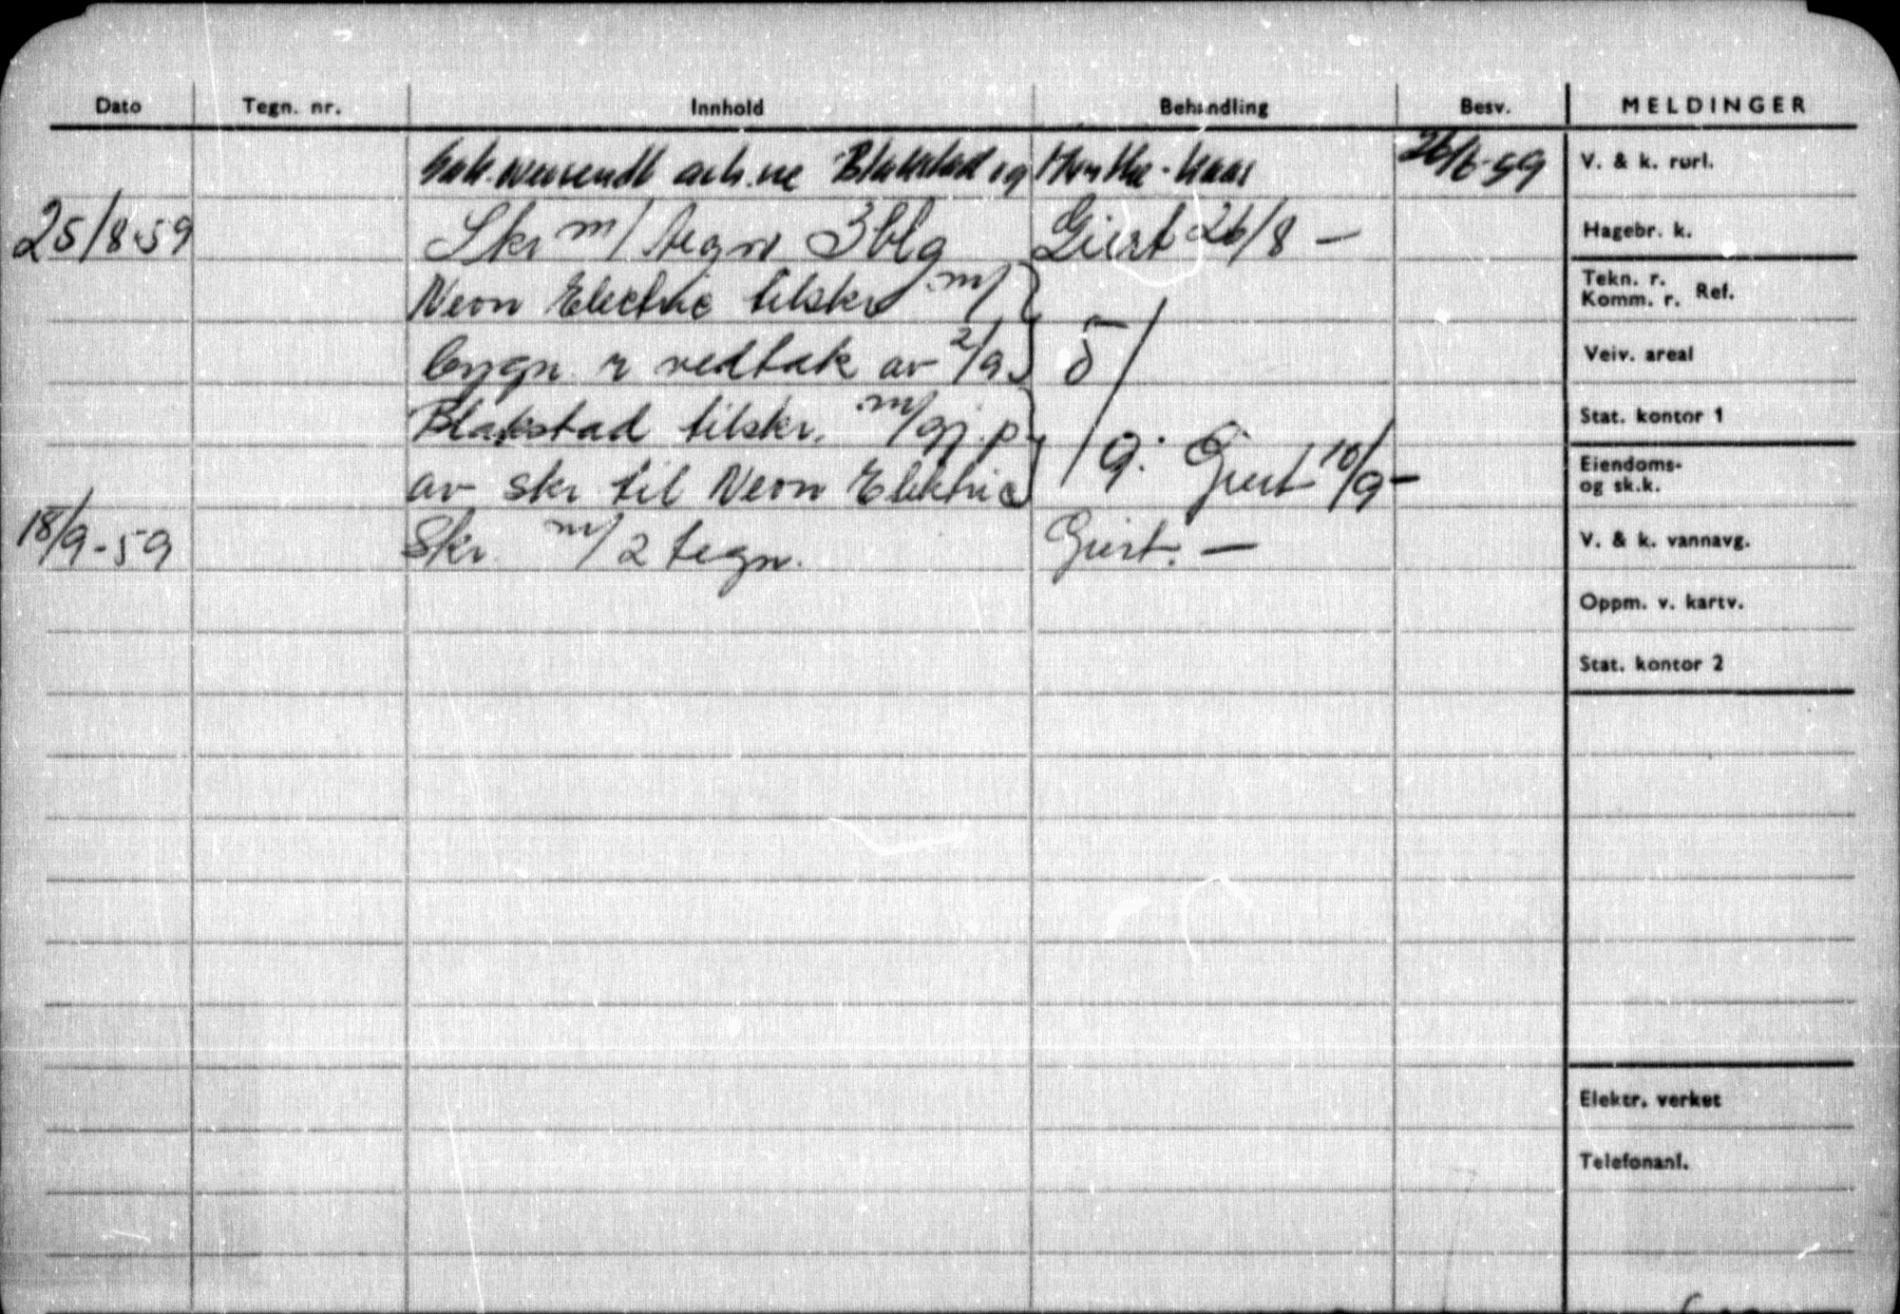 Dato Tegn. nr. Innhold Behandling Besv. MELDINGER
ark.ne Blakstad og Munthe-Kaas 26/6-59 V. & k. rørl.
25/8-59 Skr m/ tegn 3 blg Giert 26/8 — Hagebr. k.
Neon Electric tilskr m/ Tekn. r. Komm. r. Ref.
bygn r vedtak av 2/9 5/ Veiv. areal
Blakstad tilskr. m/gj.p. Stat. kontor 1
av skr til Neon Elektric /9. Giert 10/9 – Eiendoms- og sk.k.
18/9-59 Skr. m/2 tegn. Giert. — V. & k. vannavg.
Oppm. v. kartv.
Stat. kontor 2
Elektr. verket
Telefonanl.